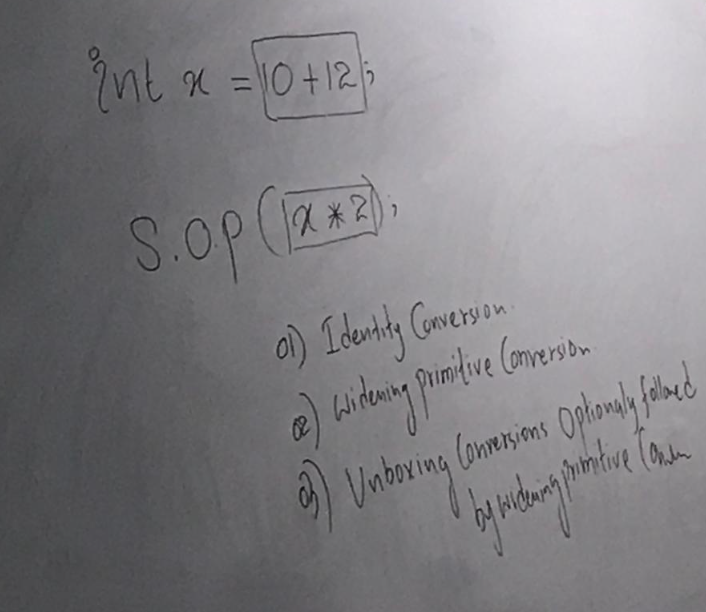 int x = 10+12;
S.O.P (x * 2);
01) Identity Conversion.
02) Widening primitive Conversion.
03) Unboxing Conversions Optionaly followed
by widening primitive